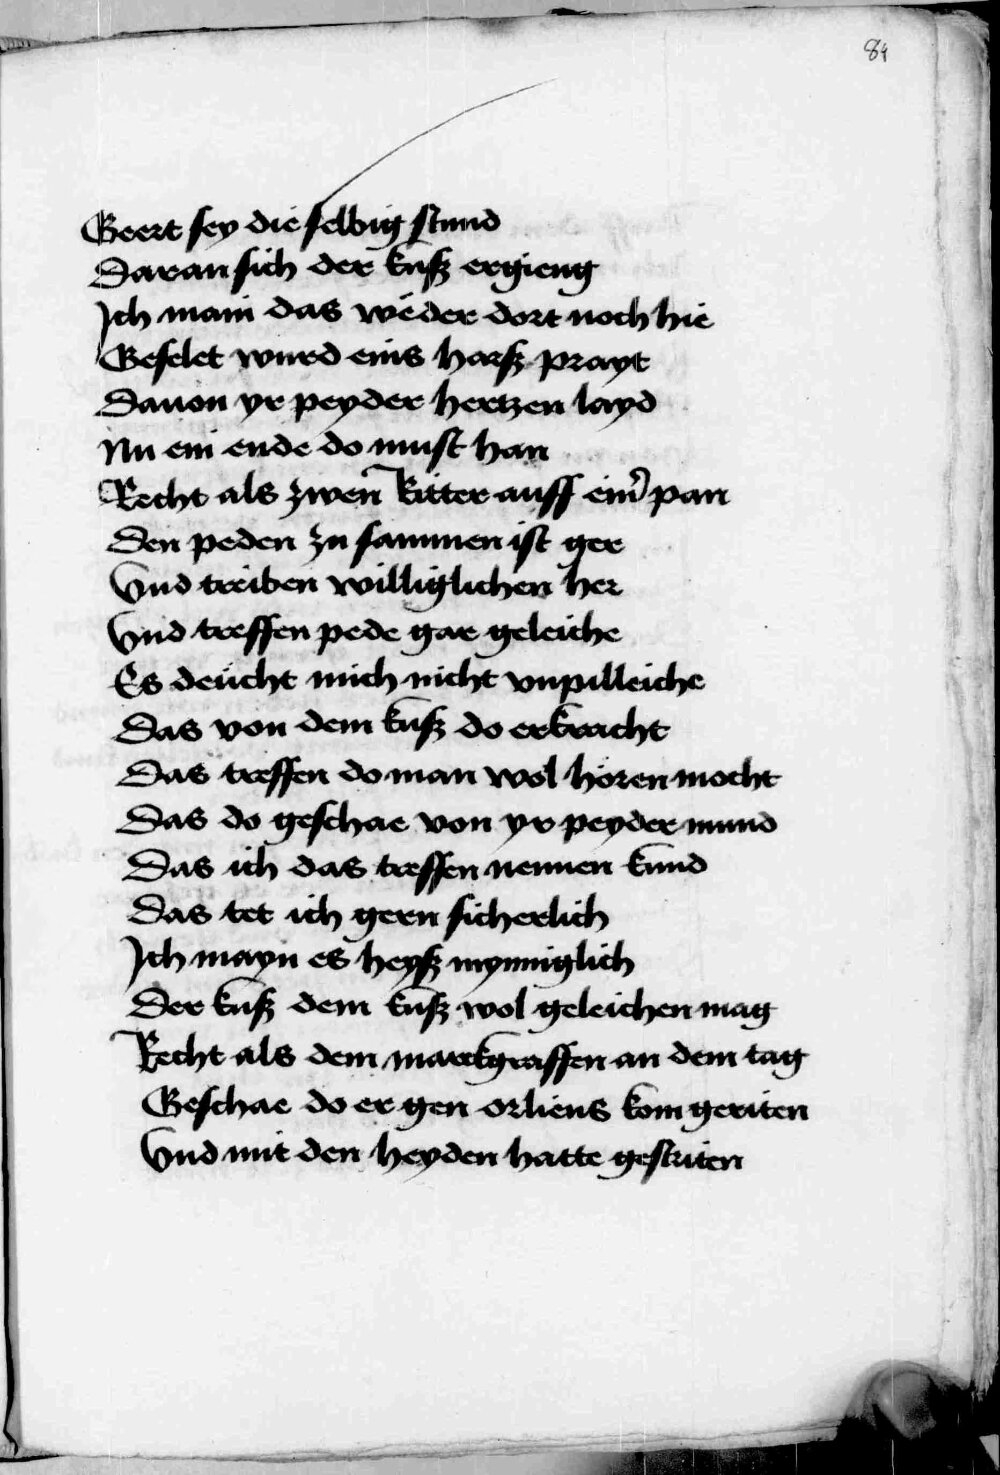 84
Geert sey die selbig stund
Daran sich der kusz ergieng
Ich main das weder dort noch hie
Geselet wurd eins harsz prayt
Dauon yr peyder hertzen layd
Nu ein ende do must han
Recht als zwen Ritter auff eim̄ pan
Den peden zu sammen ist ger
Vnd treiben williglichen her
Vnd treffen pede gar geleiche
Es deücht mich nicht vnpilleiche
Das von dem kusz do erkracht
Das treffen do man wol hören mocht
Das do geschae von yr peyder mund
Das ich das treffen nennen kund
Das tet ich gern sicherlich
Ich mayn es heysz mynniglich
Der kusz dem kusz wol geleichen mag
Recht als dem marckgraffen an dem tag
Geschae do er gen orliens kom geriten
Vnd mit den heyden hatte gestriten